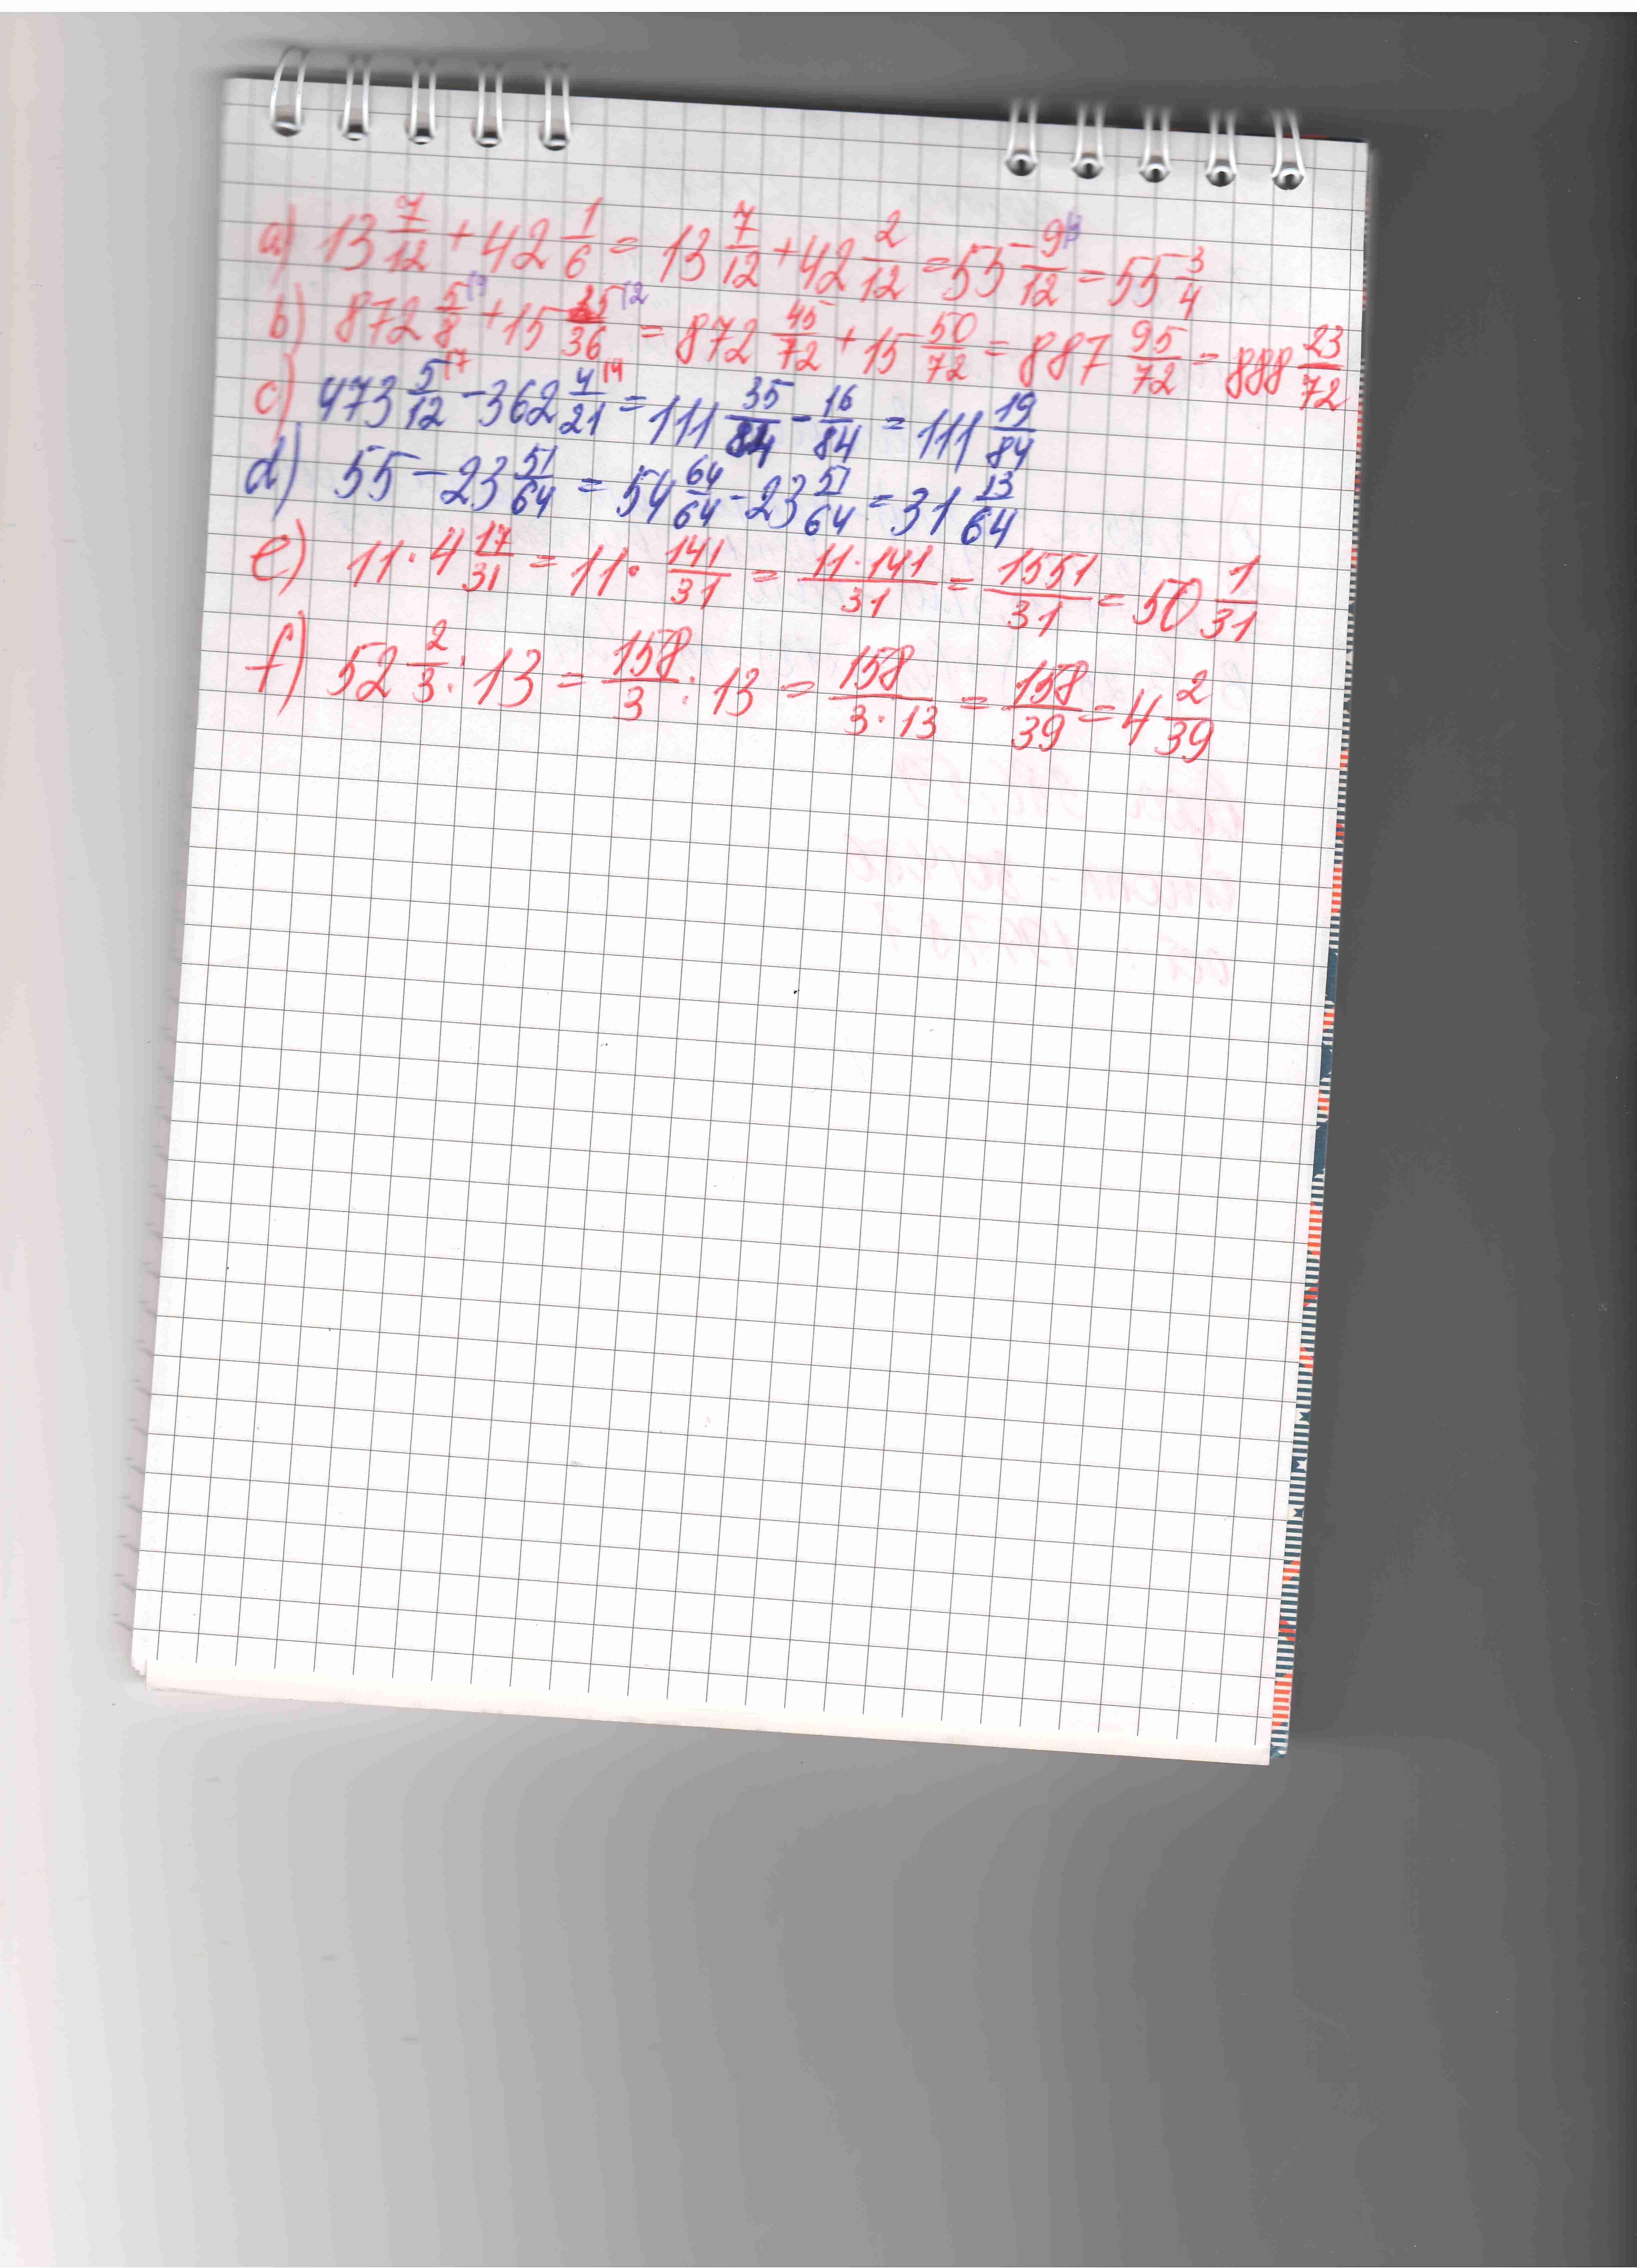 a) 13 7/12 + 42 1/6 = 13 7/12 + 42 2/12 = 55 9/12 = 55 3/4
b) 872 5/8 + 15 25/36 = 872 45/72 + 15 50/72 = 887 95/72 = 888 23/72
c) 473 5/12 - 362 4/21 = 111 35/84 - 16/84 = 111 19/84
d) 55 - 23 51/64 = 54 64/64 - 23 51/64 = 31 13/64
e) 11 · 4 17/31 = 11 · 141/31 = 11 · 141/31 = 1551/31 = 50 1/31
f) 52 2/3 : 13 = 158/3 : 13 = 158/3 · 13 = 158/39 = 4 2/39